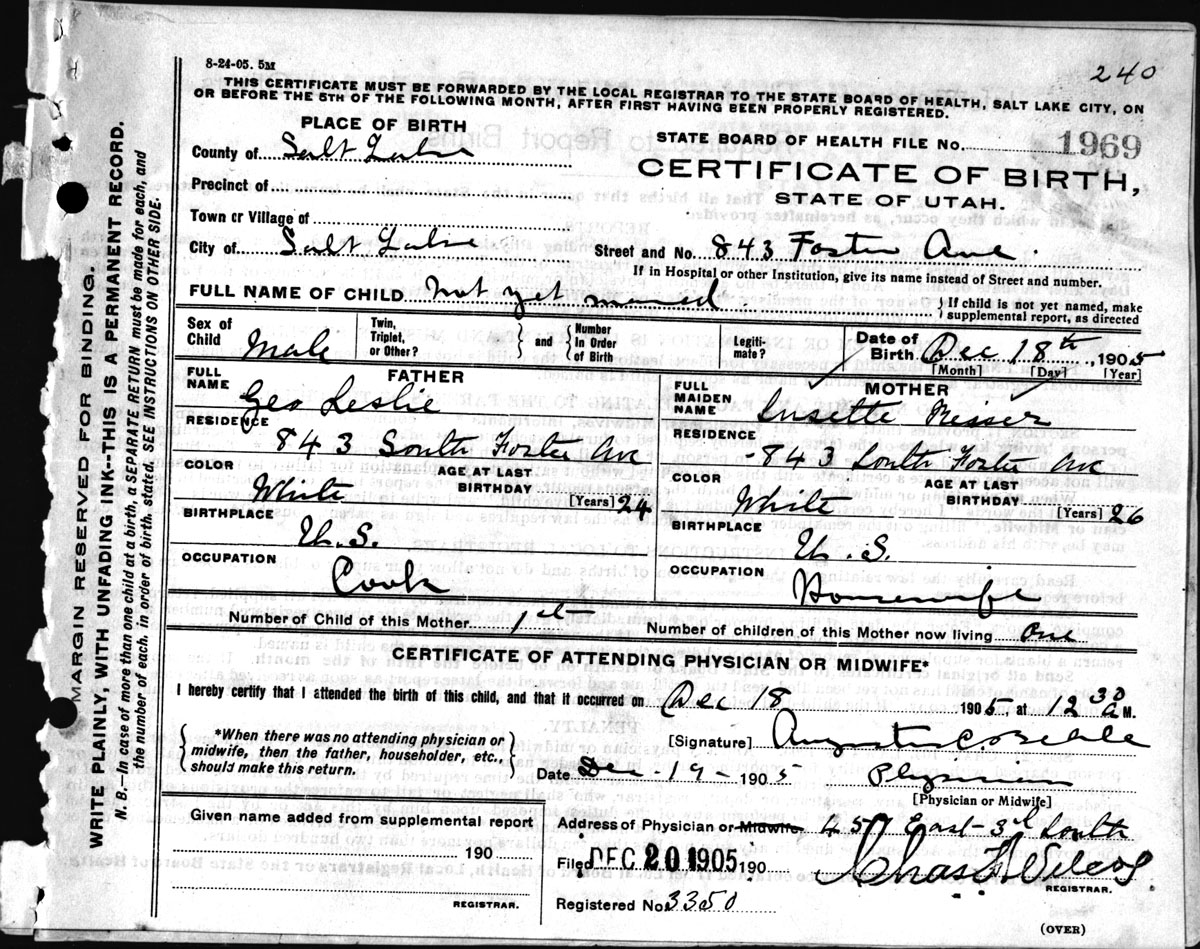 240
8-24-05. 5M
THIS CERTIFICATE MUST BE FORWARDED BY THE LOCAL REGISTRAR TO THE STATE BOARD OF HEALTH, SALT LAKE CITY, ON
OR BEFORE THE 5TH OF THE FOLLOWING MONTH, AFTER FIRST HAVING BEEN PROPERLY REGISTERED.
PLACE OF BIRTH
STATE BOARD OF HEALTH FILE No. 1969
County of Salt Lake
CERTIFICATE OF BIRTH,
Precinct of
STATE OF UTAH.
Town or Village of
City of Salt Lake Street and No. 843 Foster Ave
If in Hospital or other Institution, give its name instead of Street and number.
FULL NAME OF CHILD Not yet named { If child is not yet named, make supplemental report, as directed
Sex of Child Male Twin, Triplet, or Other? { and { Number In Order of Birth Legitimate? Date of Birth Dec 18th 1905
[Month] [Day] [Year]
FATHER
FULL NAME Geo Leslie
RESIDENCE 843 South Foster Ave
COLOR White AGE AT LAST BIRTHDAY 24 [Years]
BIRTHPLACE U.S.
OCCUPATION Cook
MOTHER
FULL MAIDEN NAME
RESIDENCE - 843 South Foster Ave
COLOR White AGE AT LAST BIRTHDAY 26 [Years]
BIRTHPLACE U.S.
OCCUPATION Housewife
Number of Child of this Mother 1st Number of children of this Mother now living one
CERTIFICATE OF ATTENDING PHYSICIAN OR MIDWIFE*
I hereby certify that I attended the birth of this child, and that it occurred on Dec 18 1905, at 12 30 a M.
{ *When there was no attending physician or
midwife, then the father, householder, etc.,
should make this return. }
[Signature]
Date Dec - 19 - 1905
[Physician or Midwife]
Given name added from supplemental report
190
REGISTRAR.
Address of Physician or Midwife, 457 East 3d South
Filed DEC 20 1905 190 Chas F Wilcox
REGISTRAR.
Registered No. 3350
(OVER)
MARGIN RESERVED FOR BINDING.
WRITE PLAINLY, WITH UNFADING INK--THIS IS A PERMANENT RECORD.
N. B.—In case of more than one child at a birth, a SEPARATE RETURN must be made for each, and
the number of each, in order of birth, stated. SEE INSTRUCTIONS ON OTHER SIDE.